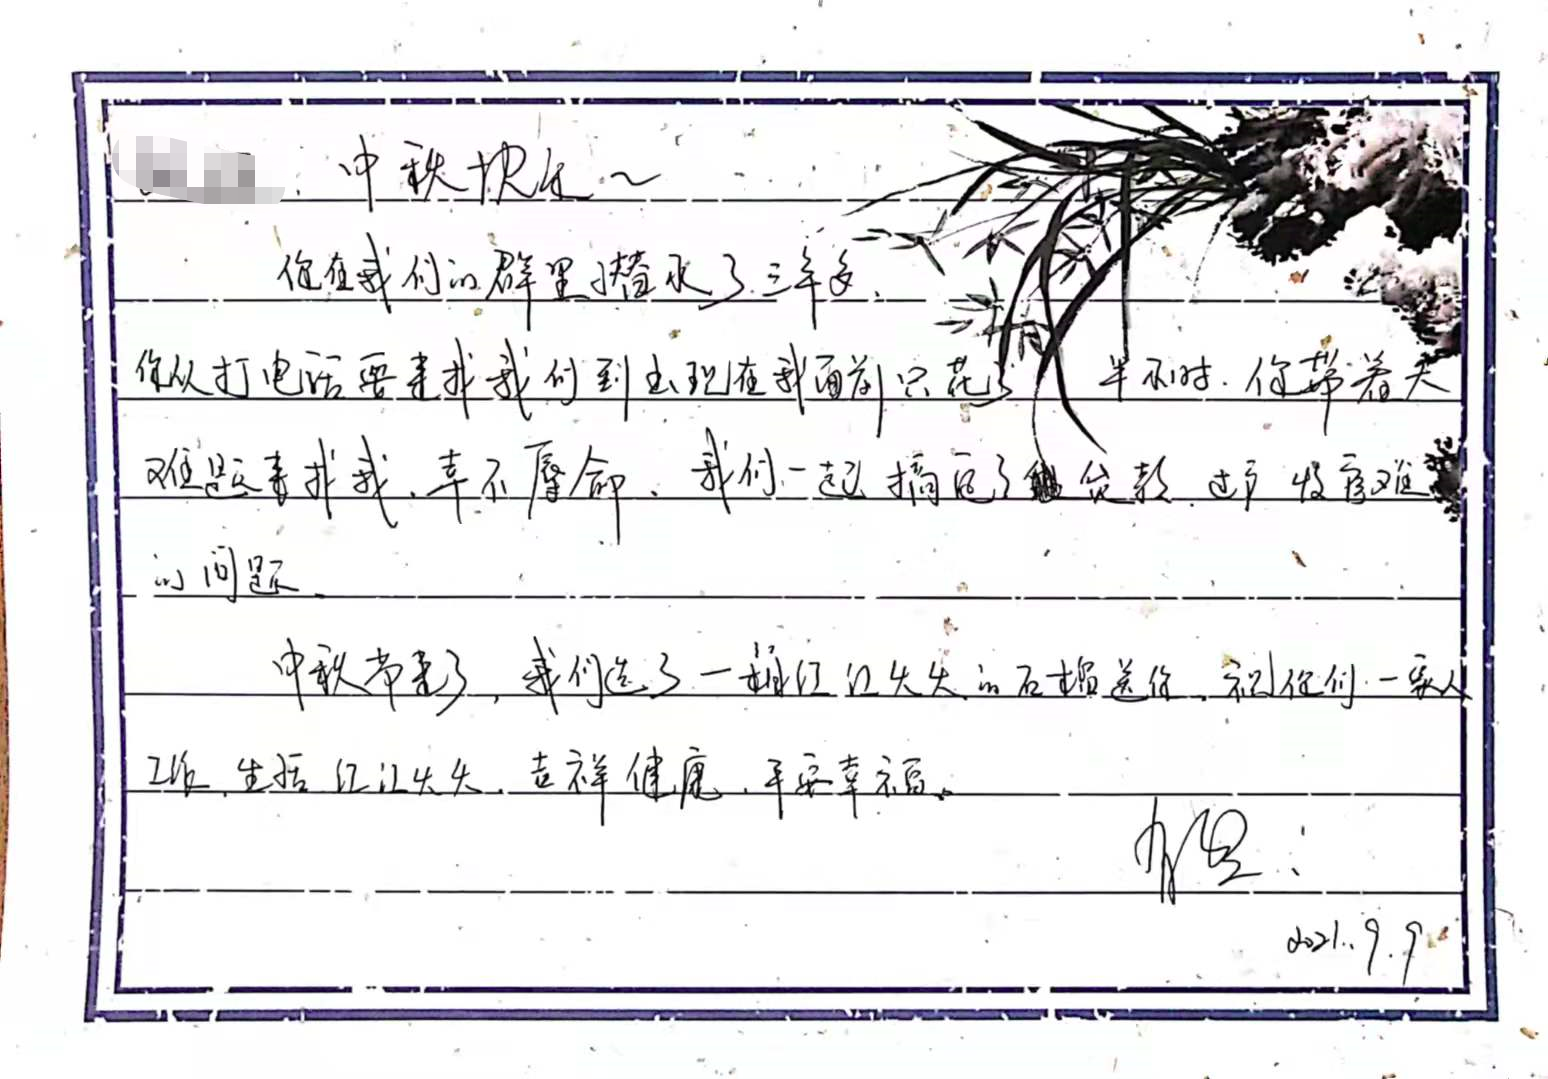 中秋快乐~
你在我们的群里潜水了三年多,
你从打电话要来找我们到出现在我面前只花了 半小时.你带着大
难题来找我,幸不辱命、我们一起搞定了 贷款、过户 收房难
的问题、
中秋节来了,我们选了一桶红红火火的石榴送你、祝你们一家人
工作、生活红红火火、吉祥健康、平安幸福。
2021.9.9